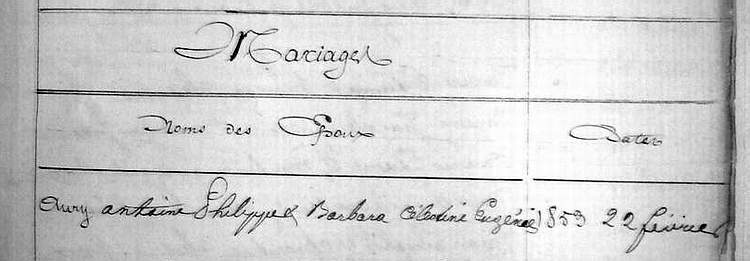 Mariages
Noms des Epoux Dates
Aury antoine Philippe & Barbara Célestine Eugénie 1853 22 février